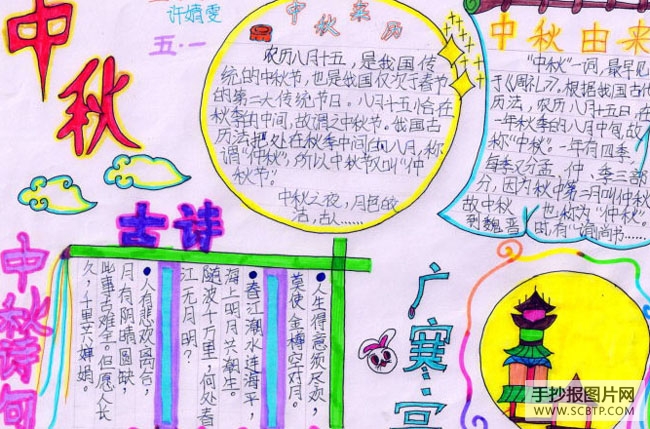 中秋
许婧雯
五·一
中秋来历
农历八月十五，是我国传
统的中秋节，也是我国仅次于春节
的第二大传统节日。八月十五恰在
秋季的中间，故谓之中秋节。我国古
历法把处在秋季中间的八月，称
谓"仲秋"，所以中秋节又叫"仲
秋节"。
中秋之夜，月色皎
洁，古人……
中秋由来
"中秋"一词，最早见
于《周礼》。根据我国古代
历法，农历八月十五日，在
一年秋季的八月中旬，故
称"中秋"。一年有四季，
每季又分孟、仲、季三部
分，因为秋中第二月叫仲秋
故中秋也称为"仲秋"。
到魏晋时，有"谕尚书……
古诗
中秋诗句
●人生得意须尽欢，
莫使金樽空对月。
●春江潮水连海平，
海上明月共潮生。
随波千万里，何处春
江无月明？
●人有悲欢离合，
月有阴晴圆缺，
此事古难全。但愿人长
久，千里共婵娟。
广寒宫
手抄报图片网
WWW.SCBTP.COM